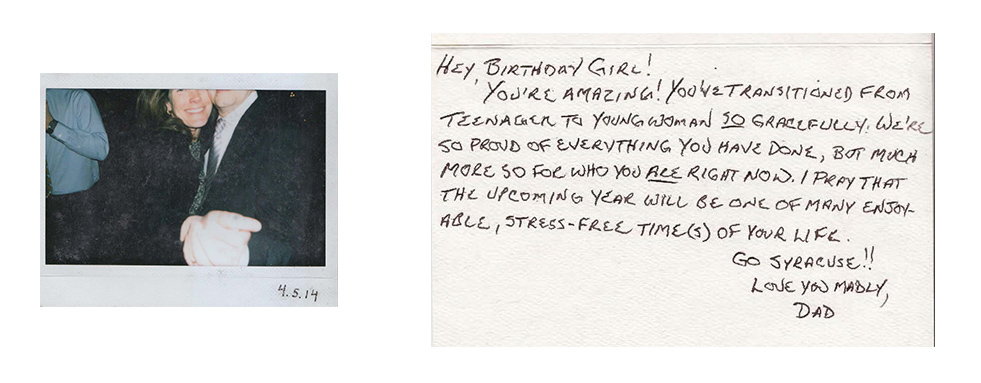 4.5.14
HEY, BIRTHDAY GIRL!
YOU'RE AMAZING! YOU'VE TRANSITIONED FROM
TEENAGER TO YOUNG WOMAN SO GRACEFULLY. WE'RE
SO PROUD OF EVERYTHING YOU HAVE DONE, BUT MUCH
MORE SO FOR WHO YOU ARE RIGHT NOW. I PRAY THAT
THE UPCOMING YEAR WILL BE ONE OF MANY ENJOY-
ABLE, STRESS-FREE TIME(S) OF YOUR LIFE.
GO SYRACUSE!!
LOVE YOU MADLY,
DAD